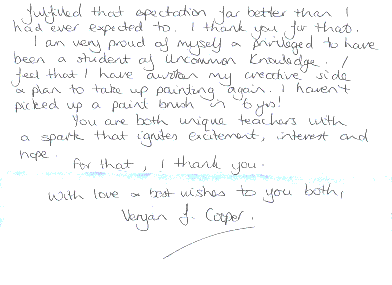 fulfilled that expectation far better than I
had ever expected to. I thank you for that.
I am very proud of myself & privileged to have
been a student of Uncommon Knowledge. I
feel that I have awoken my creative side
& plan to take up painting again. I haven't
picked up a paint brush in 6 yrs!
You are both unique teachers with
a spark that ignites excitement, interest and
hope.
For that, I thank you.
With love & best wishes to you both,
Veryan J. Cooper.